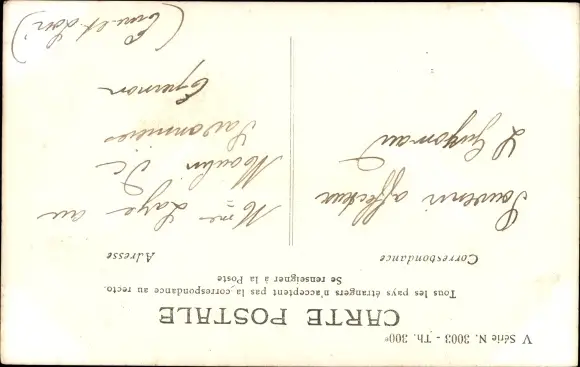 V Série N. 3003 - Th. 300e
CARTE POSTALE
Tous les pays étrangers n'acceptent pas la correspondance au recto.
Se renseigner à la Poste
Correspondance
Adresse
Souvenir affectueux
Mme Laye au
Moulin de
Savonnière
Epernon
(Eure et Loir)